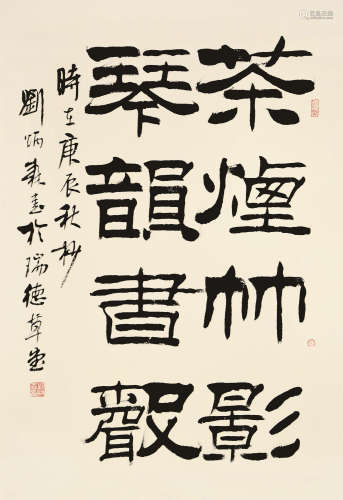 茶煙竹影
琴韻書聲
時在庚辰秋杪
劉炳森書於瑞德草堂